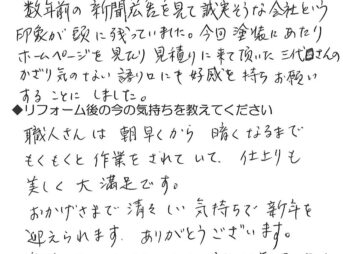 数年前の新聞広告を見て誠実そうな会社という
印象が頭に残っていました。今回塗装にあたり
ホームページを見たり見積りに来て頂いた三代さんの
かざり気のない語り口にも好感を持ちお願い
することにしました。
◆リフォーム後の今の気持ちを教えてください
職人さんは朝早くから暗くなるまで
もくもくと作業をされていて、仕上りも
美しく大満足です。
おかげさまで清々しい気持ちで新年を
迎えられます。ありがとうございます。